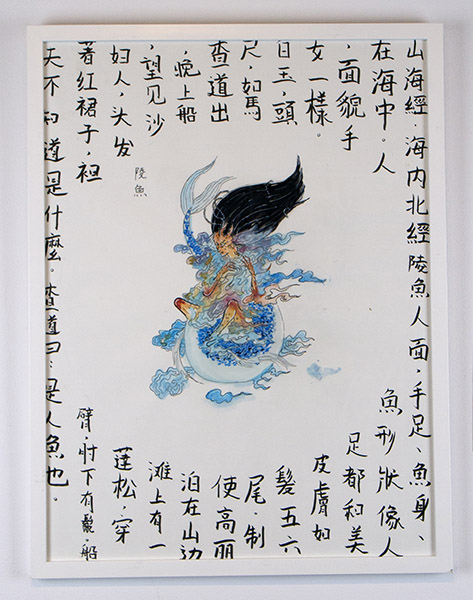 山海經．海内北經陵魚人面，手足、魚身、
在海中。人
魚形狀像人
，面貌手
足都和美
女一樣。
皮膚如
白玉，頭
髪五六
尺，如馬
尾．制
查道出
使高丽
，晚上船
泊在山边
，望见沙
滩上有一
妇人，头发
蓬松，穿
著红裙子，袒
臂，肘下有鬣，船
夫不知道是什麼。查道曰：是人魚也。
陵魚